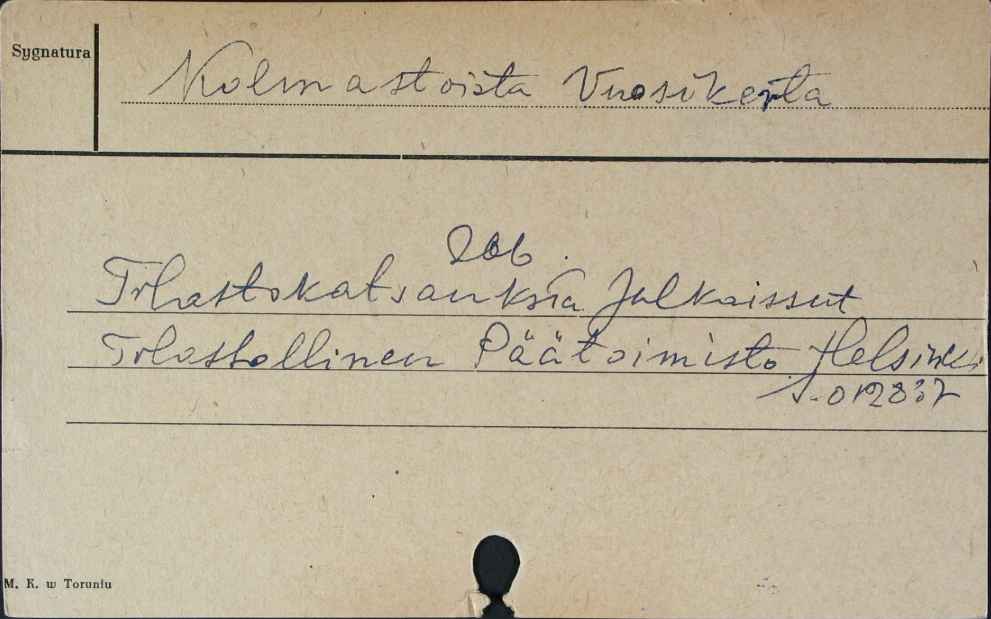 Sygnatura
Kolmastoista Vuosikerta
Zob.
Tilastokatsauksia Julkaissut
Tilastollinen Päätoimisto Helsinki
M. K. w Toruniu